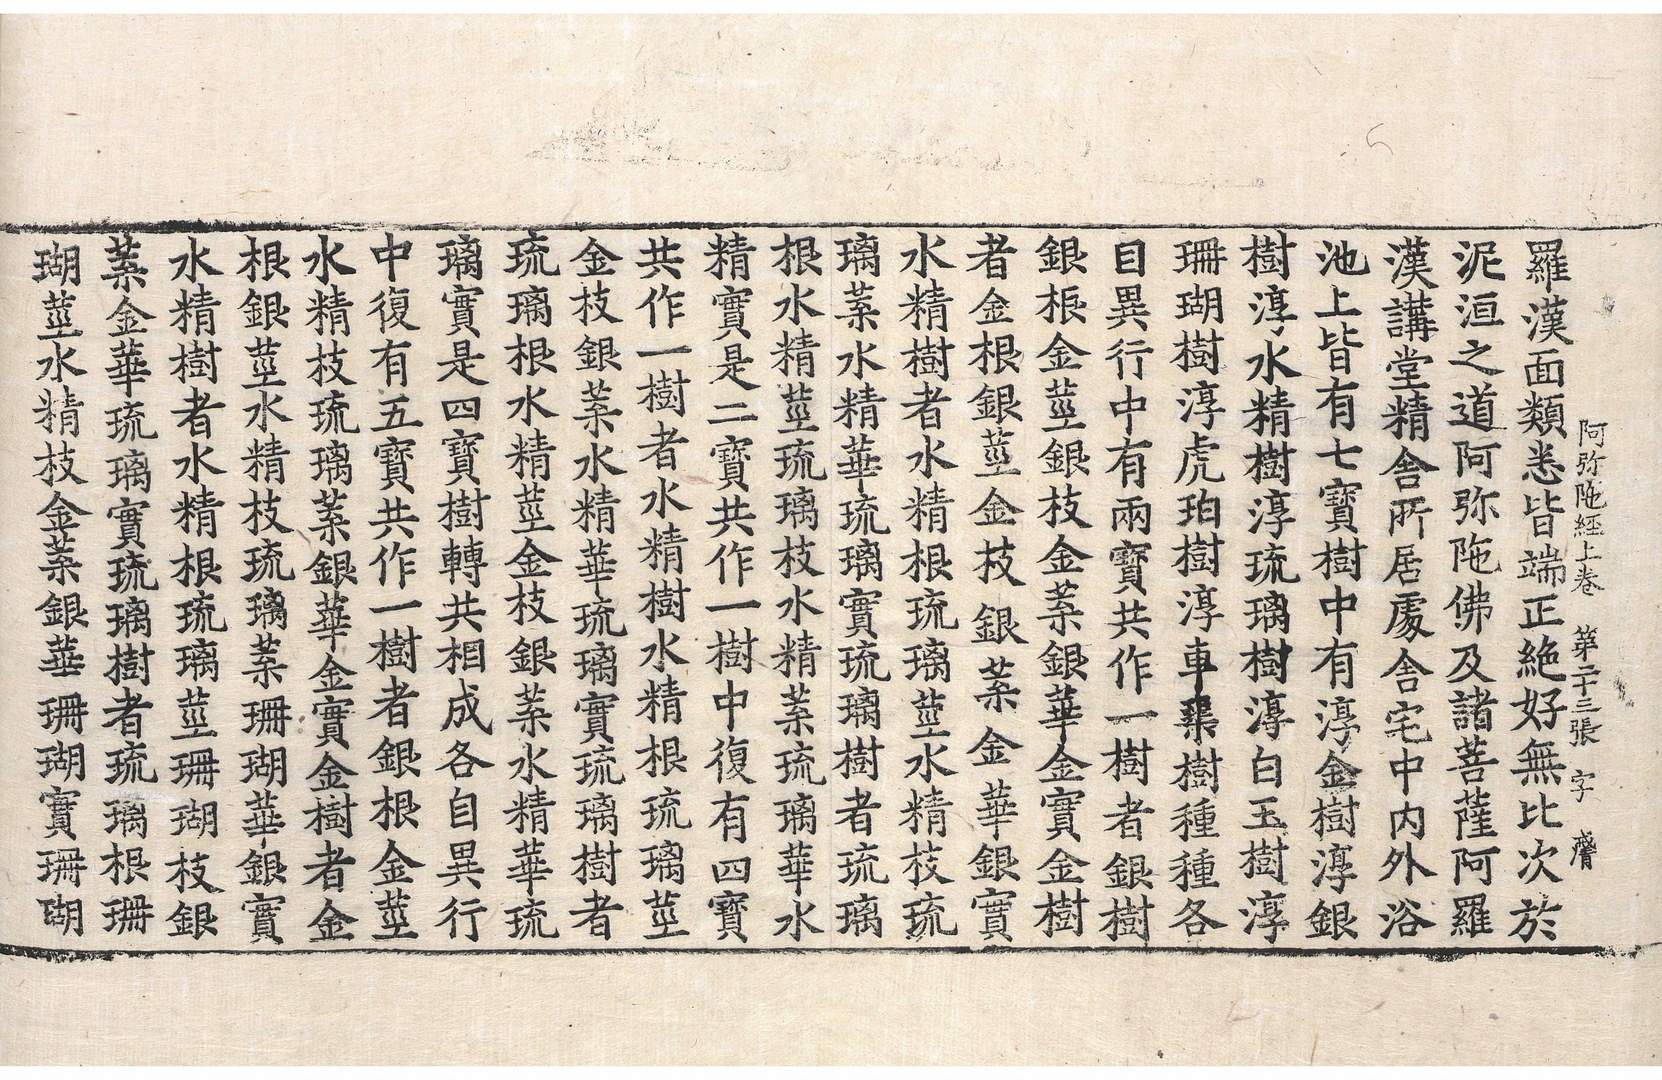 阿弥陁經上卷 第二十三張 字 號
羅漢面類悉皆端正絶好無比次於
泥洹之道阿弥陁佛及諸菩薩阿羅
漢講堂精舍所居處舍宅中内外浴
池上皆有七寶樹中有淳金樹淳銀
樹淳水精樹淳琉璃樹淳白玉樹淳
珊瑚樹淳虎珀樹淳車𤦲樹種種各
自異行中有兩寶共作一樹者銀樹
銀根金莖銀枝金葉銀華金實金樹
者金根銀莖金枝銀葉金華銀實
水精樹者水精根琉璃莖水精枝琉
璃葉水精華琉璃實琉璃樹者琉璃
根水精莖琉璃枝水精葉琉璃華水
精實是二寶共作一樹中復有四寶
共作一樹者水精樹水精根琉璃莖
金枝銀葉水精華琉璃實琉璃樹者
琉璃根水精莖金枝銀葉水精華琉
璃實是四寶樹轉共相成各自異行
中復有五寶共作一樹者銀根金莖
水精枝琉璃葉銀華金實金樹者金
根銀莖水精枝琉璃葉珊瑚華銀實
水精樹者水精根琉璃莖珊瑚枝銀
葉金華琉璃實琉璃樹者琉璃根珊
瑚莖水精枝金葉銀華珊瑚實珊瑚